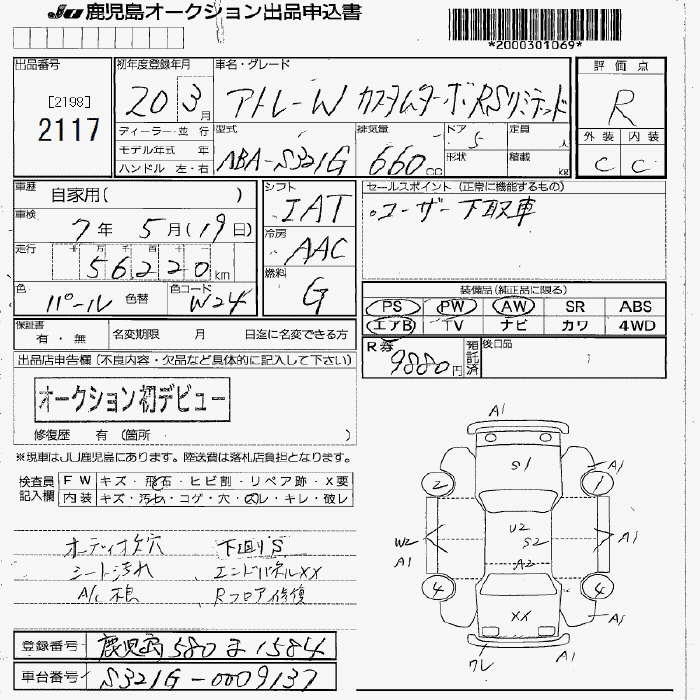 JU 鹿児島オークション出品申込書
*2000301069*
出品番号
[2198]
2117
初年度登録年月
20 3月
車名・グレード
アトレーW カスタムターボRSリミテッド
評価点
R
外装 内装
C C
ディーラー・並行
モデル年式 年
ハンドル 左・右
型式
ABA-S321G
排気量
660cc
ドア
5
形状
定員
人
積載
kg
車歴
自家用( )
車検
7年 5月(19日)
走行
十 万 千 百 十 一
56220km
色
パール
色替
色コード
W24
シフト
IAT
冷房
AAC
燃料
G
セールスポイント (正常に機能するもの)
・ユーザー下取車
装備品(純正品に限る)
PS PW AW SR ABS
エアB TV ナビ カワ 4WD
保証書
有・無
名変期限 月 日迄に名変できる方
R券
9880円
預託済
後日品
出品店申告欄(不良内容・欠品など具体的に記入して下さい)
オークション初デビュー
修復歴 有 (箇所 )
※現車はJU鹿児島にあります。陸送費は落札店負担となります。
検査員記入欄
FW キズ・飛石・ヒビ割・リペア跡・X要
内装 キズ・汚れ・コゲ・穴・スレ・キレ・破レ
オーディオ欠穴 下回りS
シート汚れ エンドパネルXX
Rフロア修復
A1
S1
2
1
A1
W2
A1
U2
S2
A2
A1
4
4
XX
A1
ワレ
A1
登録番号
鹿児島 580 ま 1584
車台番号
S321G-0009137